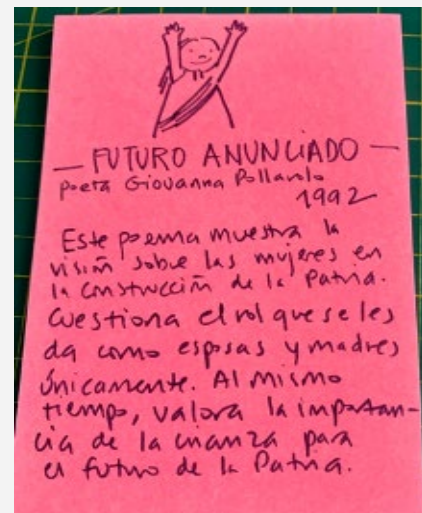 — FUTURO ANUNCIADO —
poeta Giovanna Pollarolo
1992
Este poema muestra la
visión sobre las mujeres en
la construcción de la Patria.
Cuestiona el rol que se les
da como esposas y madres
únicamente. Al mismo
tiempo, valora la importan-
cia de la crianza para
el futuro de la Patria.